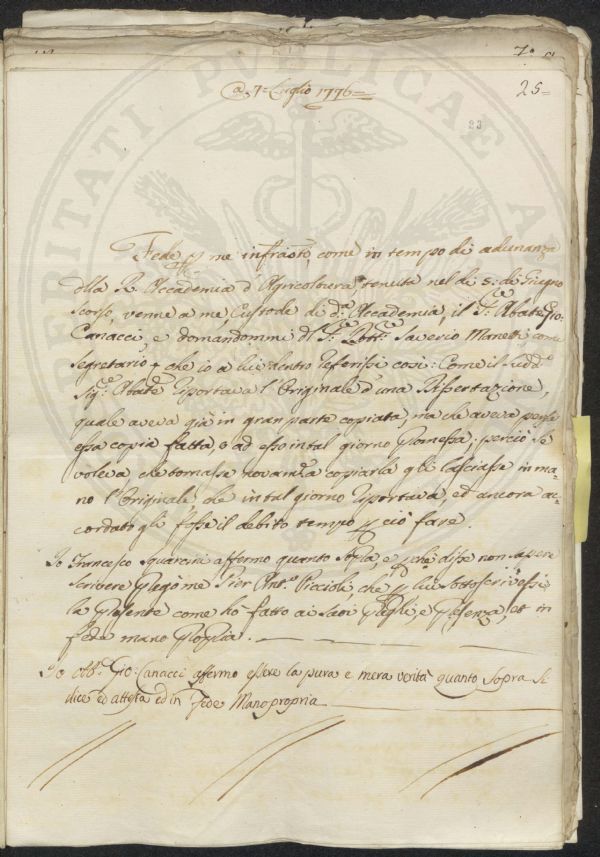 7.
25=
23
PROSPERITATI PUBLICAE AU
@ 7= Luglio 1776=
Fede p me infratto, come in tempo di adunanza
della R. Accademia d'Agricoltura tenuta nel dì 5. di Giugno
scorso, venne a me, Custode di d.ª Accademia, il S.r Abate Gio:
Canacci, e domandommi del S.r Dott.re Saverio Manetti, come
Segretario, che io a lui dentro referissi così: Come il sudd.º
Sig.re Abate riportava l'Originale d'una Dissertazione,
quale aveva già in gran parte copiata, ma che aveva persa
essa copia fatta, e ad esso in tal giorno promessa: perciò se
voleva che tornasse novam.te a copiarla gli lasciasse in ma-
no l'Originale che in tal giorno riportava, ed ancora ac-
cordato gli fosse il debito tempo p ciò fare.
Io Francesco Squarcini affermo quanto sopra, e p che disse non sapere
scrivere pregò me Pier Ant.º Piccioli, che p lui sottoscrivessi
la presente come ho fatto ai suoi preghi, e presenza, et in
fede mano propria.
Io Ab.e Gio: Canacci affermo essere la pura e mera verità quanto sopra si
dice ed attesta ed in Fede Mano propria